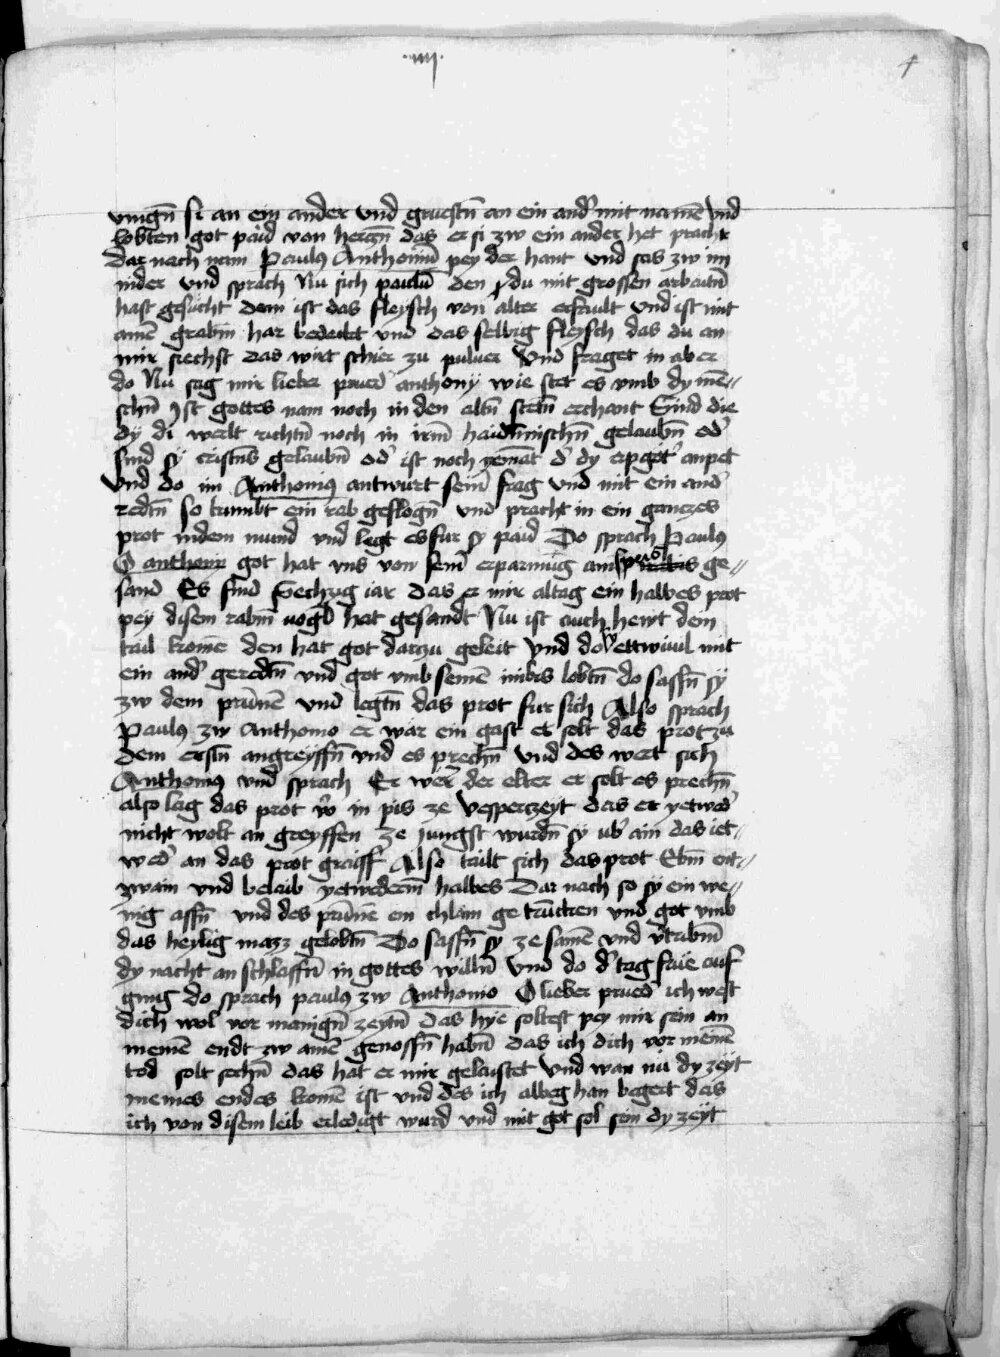 ·iiij·
4
vingn̄ si an ein ander vnd gruestn̄ an ein and̾ mit namē vnd
lobten got paid von herczn̄ das er si zw ein ander het pracht
Dar nach nam Paulus Anthoniū pey der hant vnd sas zw im
nider vnd sprach Nu sich paulū den du mit grossen arbaitn̄
hast gesucht dem ist das fleysch von alter erfault vnd ist mit
amē grabm̄ har bedeckt vnd das selbig fleysch das du an
mir siechst das wirt schier zu puluer Vnd fraget in aber
do Nu sag mir lieber prued̾ anthony wie stet es vmb dy mē=
schn̄ Ist gottes nam noch in den altn̄ stetn̄ erchant Sind die
dy di werlt richtn̄ noch in irm̄ haidnischn̄ gelaubn̄ od̾
sind sy cristns gelaubn̄ od̾ ist noch yemāt d̾ dy erpget̾ anpet
Vnd do im Anthonius antwurt sein̄ frag vnd mit ein and̾
redtn̄ so kumbt ein rab geflogn̄ vnd pracht in ein ganczes
prot in dem mund vnd legt es fur sy paid Do sprach Paulus
O anthoni got hat vns von sein̄ erparmūg ge=
sand Es sind Sechzig iar das er mir altag ein halbes prot
pey disem rabm̄ uogl hat gesandt Nu ist auch hewt dem
tail komē den hat got darzu geleit Vnd do sy ettwiuil mit
ein and̾ geredtn̄ vnd got vmb semē imbs lobtn̄ do sassn̄ sy
zw dem prūnen vnd legtn̄ das prot fur sich Also sprach
Paulus zw Anthonio er wär ein gast er solt das prot zu
dem erstn̄ angreyffn̄ vnd es prechn̄ vnd des wert sich
Anthonius vnd sprach Er wer der elter er solt es prechn̄
also lag das prot vor in pis ze Vesperczeyt das er yetwed̾
nicht wolt an greyffen ze jungst wurdn̄ sy ub̾ ain das iet=
wed̾ an das prot graiff Also tailt sich das prot Ebm̄ ent=
zwain vnd belaib yetwederm̄ halbes Dar nach so sy ein we=
nig assn̄ vnd des prūnē ein chlain getrūcken vnd got vmb
das heylig mazz gelobtn̄ Do sassn̄ sy ze samē vnd v̾tribm̄
dy nacht an schlaffn̄ in gottes willn̄ Vnd do d̾ tag frue auf
ging do sprach paulus zw Anthonio O lieber prued̾ ich west
dich wol vor manign̄ zeytn̄ das hye soltest pey mir sein an
meinē endt zw amē genossn̄ habn̄ das ich dich vor meinē
tod solt sechn̄ das hat er mir gelaistet Vnd wan nu dy zeyt
meines endes komē ist vnd des ich albeg han begert das
ich von disem leib erledigt wurd vnd mit got sol sein dy zeyt